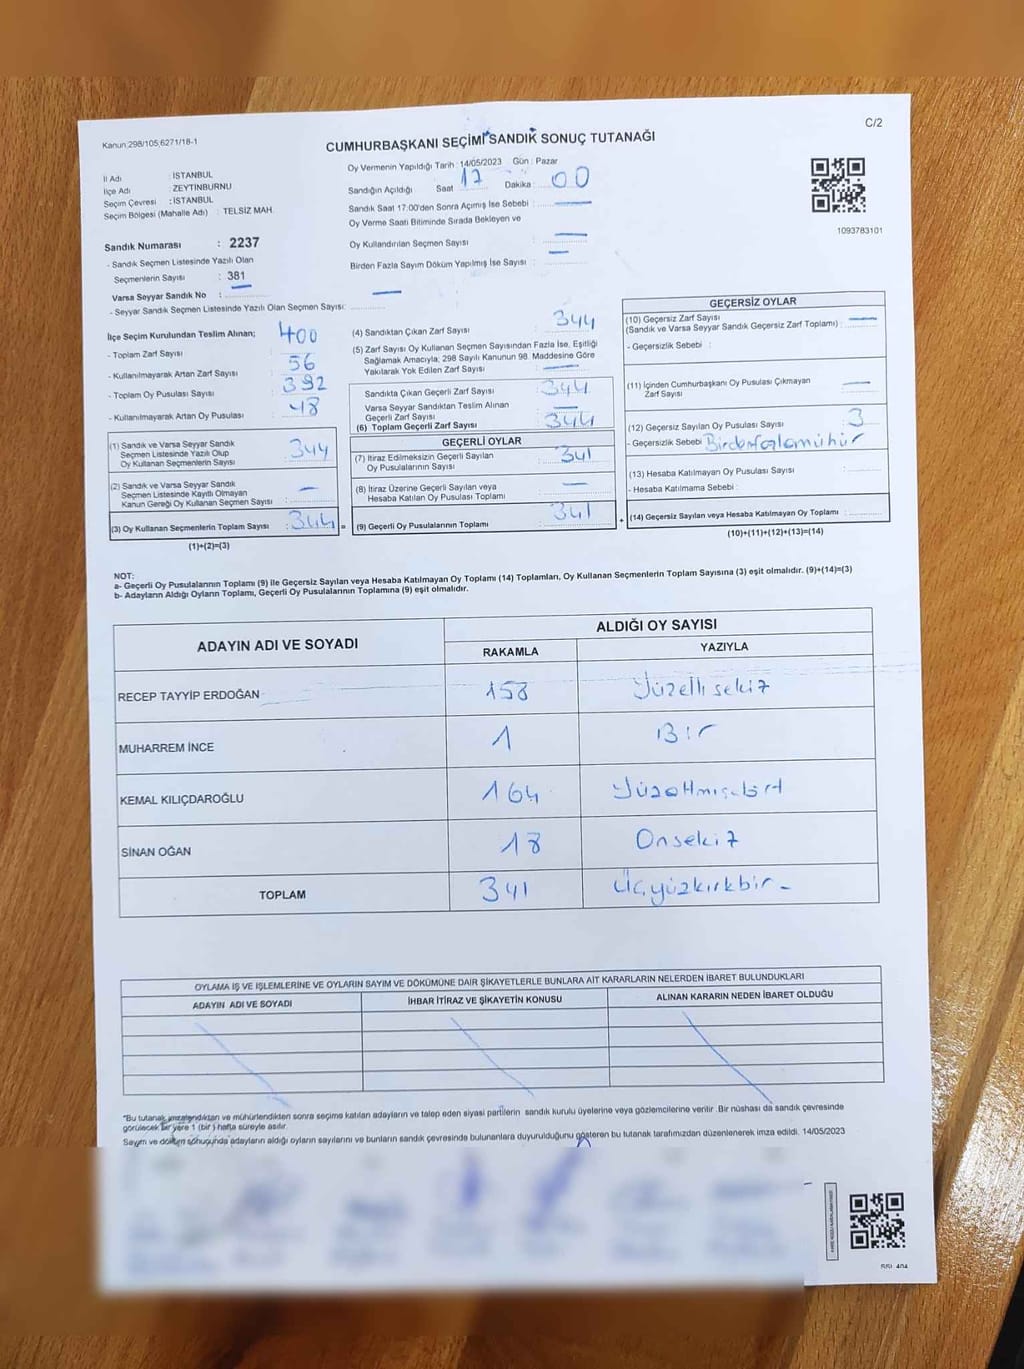 Kanun:298/105;6271/18-1
C/2
CUMHURBAŞKANI SEÇİMİ SANDIK SONUÇ TUTANAĞI
İl Adı : İSTANBUL
İlçe Adı : ZEYTİNBURNU
Seçim Çevresi : İSTANBUL
Seçim Bölgesi (Mahalle Adı) : TELSİZ MAH.
Sandık Numarası : 2237
- Sandık Seçmen Listesinde Yazılı Olan
Seçmenlerin Sayısı : 381
Varsa Seyyar Sandık No :
- Seyyar Sandık Seçmen Listesinde Yazılı Olan Seçmen Sayısı:
Oy Vermenin Yapıldığı Tarih : 14/05/2023 Gün : Pazar
Sandığın Açıldığı Saat 17 Dakika : 00
Sandık Saat 17:00'den Sonra Açımış İse Sebebi :
Oy Verme Saati Bitiminde Sırada Bekleyen ve
Oy Kullandırılan Seçmen Sayısı
Birden Fazla Sayım Döküm Yapılmış İse Sayısı :
1093783101
İlçe Seçim Kurulundan Teslim Alınan;
- Toplam Zarf Sayısı : 400
- Kullanılmayarak Artan Zarf Sayısı : 56
- Toplam Oy Pusulası Sayısı : 392
- Kullanılmayarak Artan Oy Pusulası : 48
(1) Sandık ve Varsa Seyyar Sandık
Seçmen Listesinde Yazılı Olup
Oy Kullanan Seçmenlerin Sayısı : 344
(2) Sandık ve Varsa Seyyar Sandık
Seçmen Listesinde Kayıtlı Olmayan
Kanun Gereği Oy Kullanan Seçmen Sayısı :
(3) Oy Kullanan Seçmenlerin Toplam Sayısı : 344 =
(1)+(2)=(3)
(4) Sandıktan Çıkan Zarf Sayısı : 344
(5) Zarf Sayısı Oy Kullanan Seçmen Sayısından Fazla İse, Eşitliği
Sağlamak Amacıyla, 298 Sayılı Kanunun 98. Maddesine Göre
Yakılarak Yok Edilen Zarf Sayısı :
Sandıkta Çıkan Geçerli Zarf Sayısı : 344
Varsa Seyyar Sandıktan Teslim Alınan
Geçerli Zarf Sayısı :
(6) Toplam Geçerli Zarf Sayısı : 344
GEÇERLİ OYLAR
(7) İtiraz Edilmeksizin Geçerli Sayılan
Oy Pusulalarının Sayısı : 341
(8) İtiraz Üzerine Geçerli Sayılan veya
Hesaba Katılan Oy Pusulası Toplamı :
(9) Geçerli Oy Pusulalarının Toplamı : 341 +
GEÇERSİZ OYLAR
(10) Geçersiz Zarf Sayısı
(Sandık ve Varsa Seyyar Sandık Geçersiz Zarf Toplamı) :
- Geçersizlik Sebebi :
(11) İçinden Cumhurbaşkanı Oy Pusulası Çıkmayan
Zarf Sayısı :
(12) Geçersiz Sayılan Oy Pusulası Sayısı : 3
- Geçersizlik Sebebi : Birden fazla mühür
(13) Hesaba Katılmayan Oy Pusulası Sayısı :
- Hesaba Katılmama Sebebi :
(14) Geçersiz Sayılan veya Hesaba Katılmayan Oy Toplamı :
(10)+(11)+(12)+(13)=(14)
NOT:
a- Geçerli Oy Pusulalarının Toplamı (9) ile Geçersiz Sayılan veya Hesaba Katılmayan Oy Toplamı (14) Toplamları, Oy Kullanan Seçmenlerin Toplam Sayısına (3) eşit olmalıdır. (9)+(14)=(3)
b- Adayların Aldığı Oyların Toplamı, Geçerli Oy Pusulalarının Toplamına (9) eşit olmalıdır.
ADAYIN ADI VE SOYADI
ALDIĞI OY SAYISI
RAKAMLA YAZIYLA
RECEP TAYYİP ERDOĞAN 158 Yüzelli sekiz
MUHARREM İNCE 1 Bir
KEMAL KILIÇDAROĞLU 164 Yüzatmışdört
SİNAN OĞAN 18 Onsekiz
TOPLAM 341 Üçyüzkırkbir -
OYLAMA İŞ VE İŞLEMLERİNE VE OYLARIN SAYIM VE DÖKÜMÜNE DAİR ŞİKAYETLERLE BUNLARA AİT KARARLARIN NELERDEN İBARET BULUNDUKLARI
ADAYIN ADI VE SOYADI İHBAR İTİRAZ VE ŞİKAYETİN KONUSU ALINAN KARARIN NEDEN İBARET OLDUĞU
*Bu tutanak imzalandıktan ve mühürlendikten sonra seçime katılan adayların ve talep eden siyasi partilerin sandık kurulu üyelerine veya gözlemcilerine verilir. Bir nüshası da sandık çevresinde
görülecek bir yere 1 (bir) hafta süreyle asılır.
Sayım ve döküm sonucunda adayların aldığı oyların sayılarını ve bunların sandık çevresinde bulunanlara duyurulduğunu gösteren bu tutanak tarafımızdan düzenlenerek imza edildi. 14/05/2023